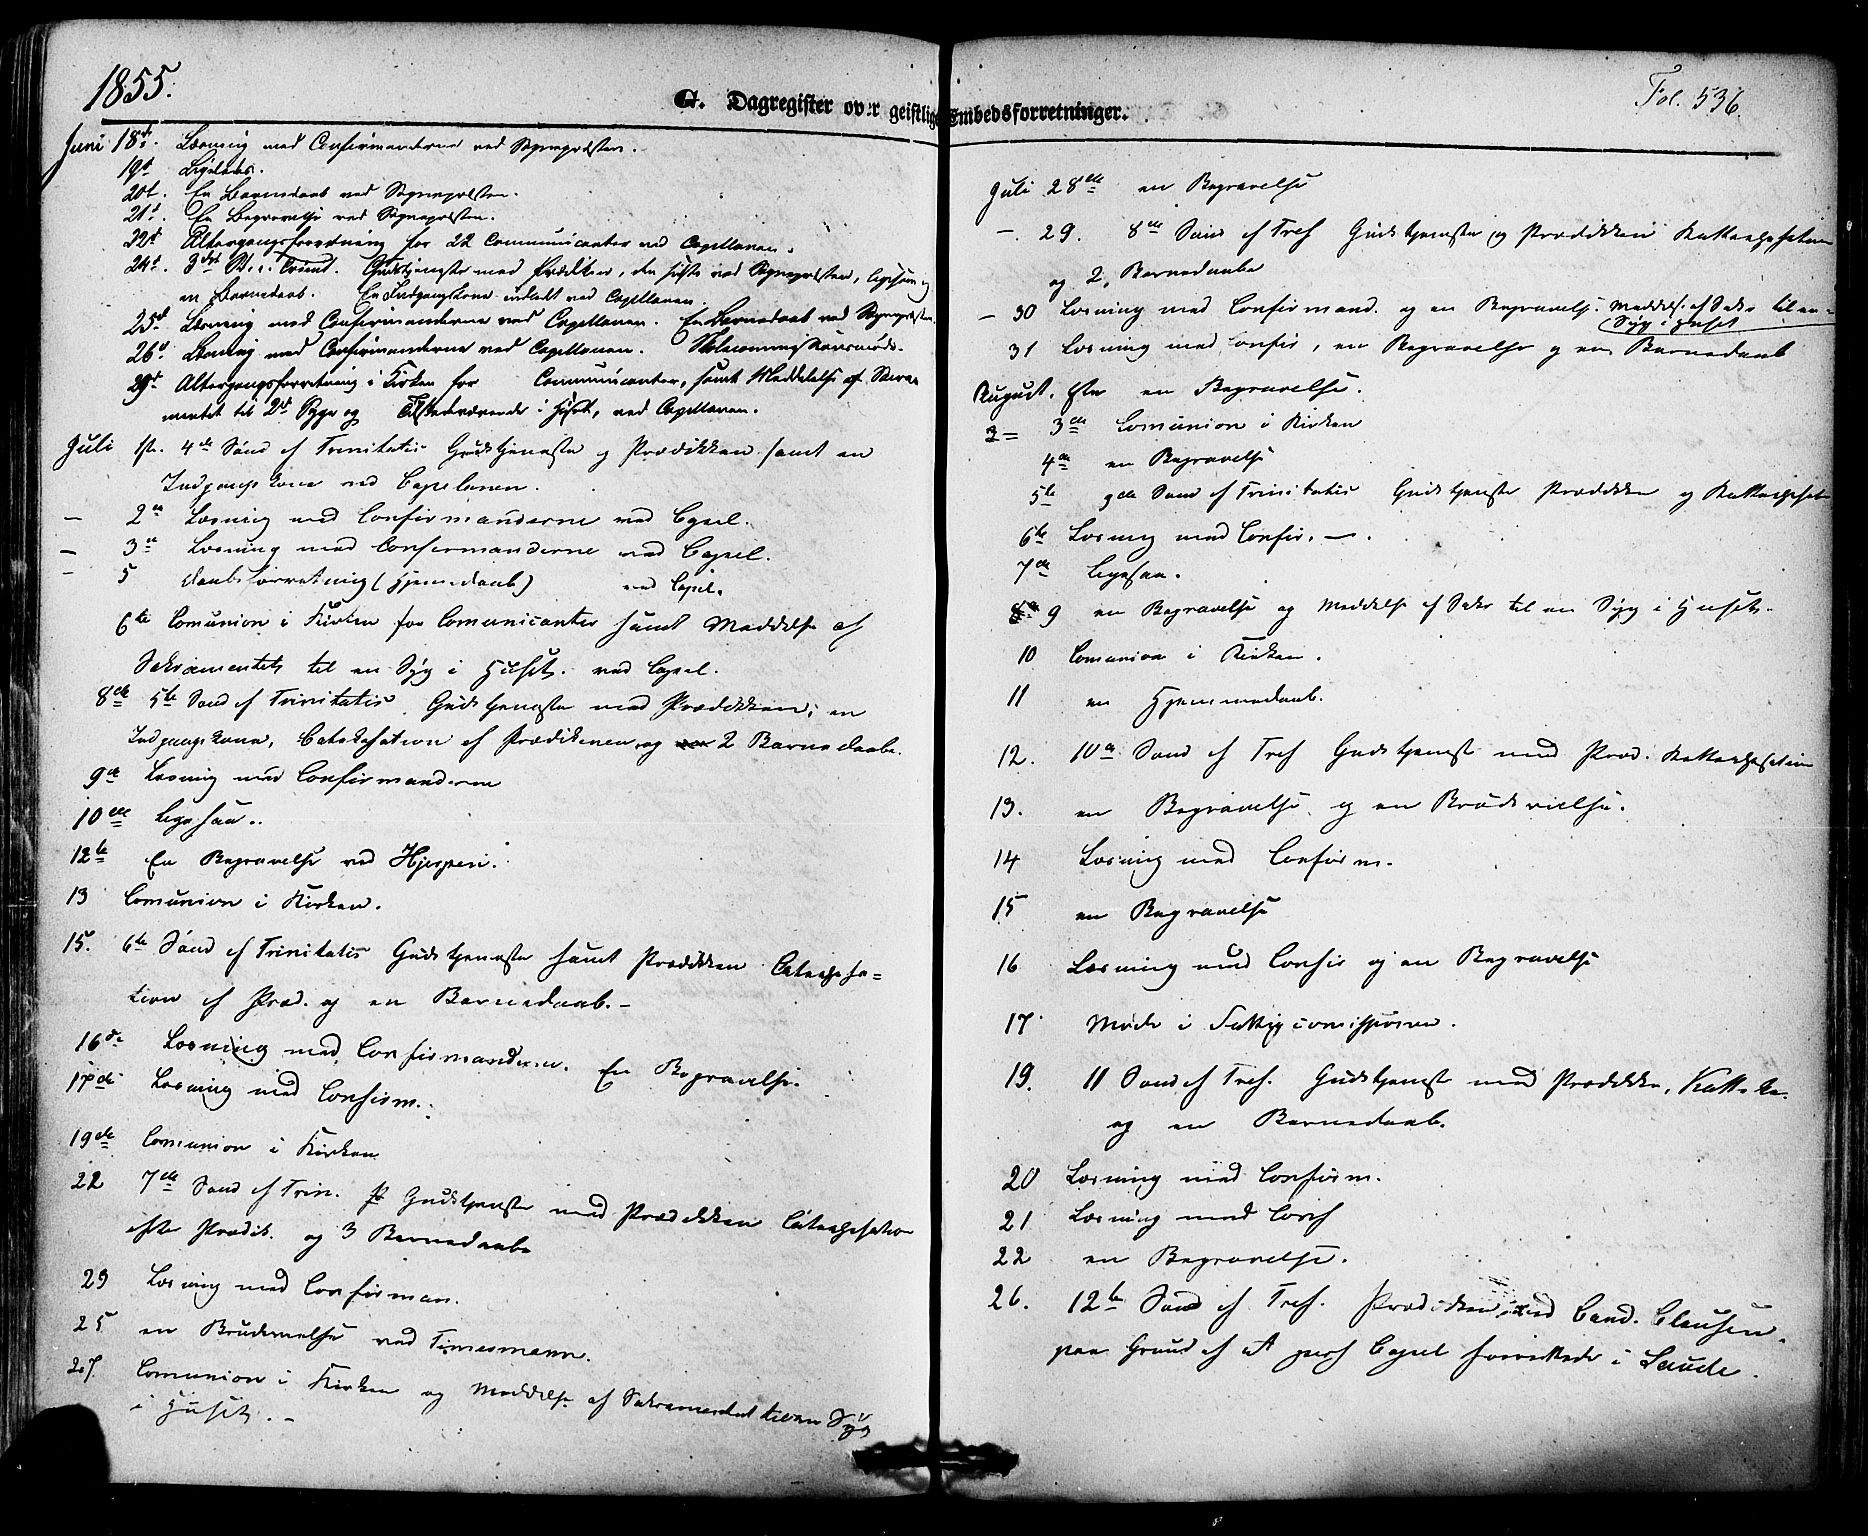 1855.
G. Dagregister over geistlige Embedsforretninger.
Fol. 536
Juni 18de. Læsning med Confirmanderne ved Sognepræsten.
19d Ligeledes.
20d. En Barnedaab ved Sognepræsten.
21d. En Begravelse ved Sognepræsten.
22d Altergangsforretning for 22 Communicanter ved Capellanen.
24d. 3die S. e. Trinit. Gudstjeneste med Prædiken, den sidste ved Sognepræsten, ligesom og
en Barnedaab. En Indgangskone indledt ved Capellanen.
25d Læsning med Confirmanderne ved Capellanen. En Barnedaab ved Sognepræsten.
26d Læsning med Confirmanderne ved Capellanen. Skolecommissionsmøde.
29d Altergangsforretning i Kirken for Communicanter, samt Meddelelse af Sacra-
mentet til 2de Syge og Tilstedeværende i Huset, ved Capellanen.
Juli 1ste. 4de Sønd ef Trinitatis Gudstjeneste og Prædikken samt en
Indgangskone ved Capelanen.
– 2en Læsning med Confirmanderne ved Capel.
– 3e Læsning med Confermanderne ved Capel.
– 5 daabsforretning (Hjemedaab) ved Capel.
6te Comunion i Kirken for Comunicanter samt Meddelse af
Sakramentets til en Syg i Huset. ved Capel.
8de 5te Sønd ef Trinitatis. Gudstjeneste med Prædikken; en
Indgangskone, Catekesation ef Prædikenen og 2 Barnedaabe.
9de Læsning med Confirmanderne
10de ligesaa..
12te En Begravelse ved Hjerpseri.
13 Comunion i Kirken.
15. 6te Sønd ef Trinitatis Gudstjeneste samt Prædikken Catechesa=
tion ef Præd. og en Barnedaab.–
16de Læsning med Confirmanderne. En Begravelse.
17de Læsning med Confirm.
19de Comunion i Kirken
22 7de Sønd ef Trin. Gudstjenste med Prædikken Catechesation
efter Prædik. og 3 Barnedaabe
23 Læsning med Confirman.
25 en Brudevielse ved Timesmann.
27. Comunion i Kirken og Meddelse af Sakramentet til en Syg
i Huset. –
Juli 28de en Begravelse
–. 29. 8de Sønd ef Tref Gudstjeneste og Prædikken Kattechesation
og 2 Barnedaabe
– 30 Læsning med Confirmand. og en Begravelse. Meddelse af Sakr til en
Syg i Huset
31 Læsning med Confir, en Begravelse og en Barnedaab
August. 1ste en Begravelse.
3de Comunion i Kirken
4de en Begravelse
5te 9de Sønd ef Trinitatis Gudstjenste Prædikken og Kattechesat
6te Læsning med Confir. –.
7de ligesaa.
9 en Begravelse og Meddelse af Sakr til en Syg i Huset.
10 Comunion i Kirken.
11 en Hjemmedaab.
12. 10de Sønd ef Tref Gudstjenst med Præd. Kattechesation
13. en Begravelse og en Brudevielse.
14 Læsning med Confirm.
15 en Begravelse
16 Læsning med Confir og en Begravelse
17. Møde i Fattigcomissionen.
19. 11 Sønd ef Tref. Gudstjenst med Prædikke, Katteke.
og en Barnedaab.
20 Læsning med Confirm.
21 Læsning med Conf
22 en Begravelse.
26. 12te Sønd ef Tref. Prædikken ved Cand. Clausen.
paa Grund af at pers Capel forrettede i Saude.